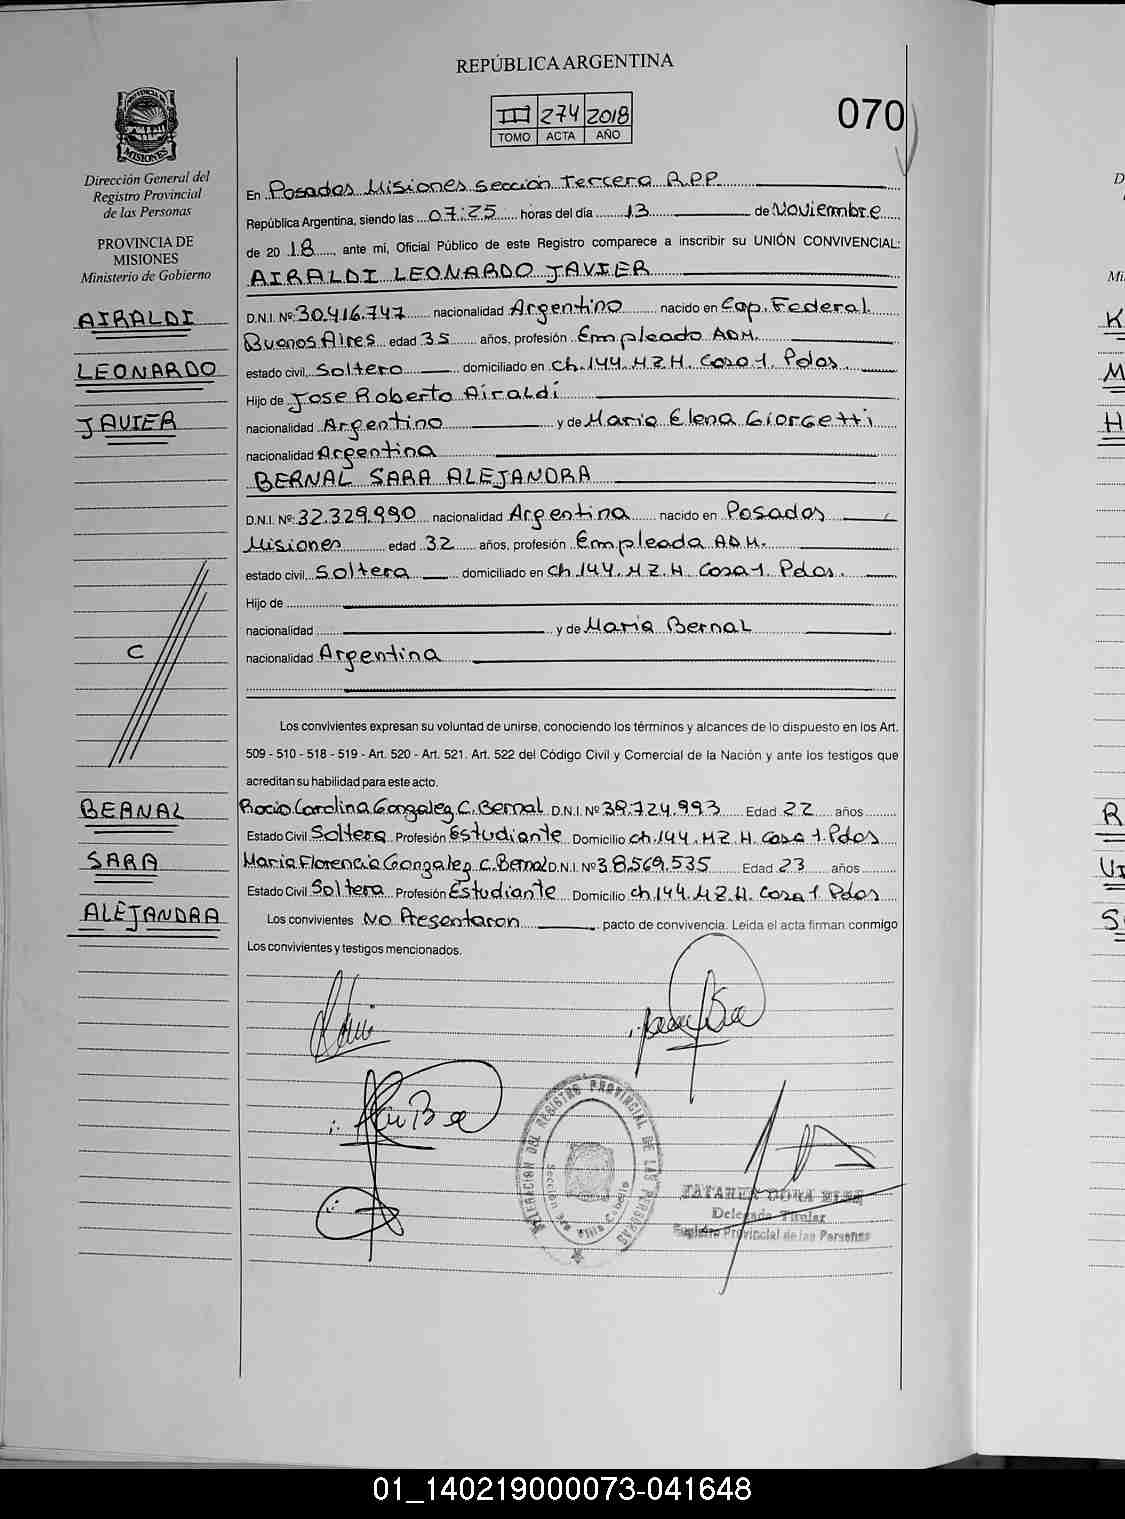 REPÚBLICA ARGENTINA
III 274 2018
TOMO ACTA AÑO
070
PROVINCIA DE
MISIONES
Dirección General del
Registro Provincial
de las Personas
PROVINCIA DE
MISIONES
Ministerio de Gobierno
AIRALDI
LEONARDO
JAVIER
C
BERNAL
SARA
ALEJANDRA
En Posadas Misiones Sección Tercera R.P.P.
República Argentina, siendo las 07:25 horas del día 13 de Noviembre
de 20 18, ante mí, Oficial Público de este Registro comparece a inscribir su UNIÓN CONVIVENCIAL:
AIRALDI LEONARDO JAVIER
D.N.I. Nº 30.416.747 nacionalidad Argentino nacido en Cap. Federal
Buenos Aires edad 35 años, profesión Empleado ADM.
estado civil Soltero domiciliado en Ch. 144. MZ H. Casa 1. Pdas.
Hijo de Jose Roberto Airaldi
nacionalidad Argentino y de Maria Elena Giorgetti
nacionalidad Argentina
BERNAL SARA ALEJANDRA
D.N.I. Nº 32.329.990 nacionalidad Argentina nacido en Posadas
Misiones edad 32 años, profesión Empleada ADM.
estado civil Soltera domiciliado en Ch. 144. MZ. H. Casa 1. Pdas.
Hijo de
nacionalidad y de Maria Bernal
nacionalidad Argentina
Los convivientes expresan su voluntad de unirse, conociendo los términos y alcances de lo dispuesto en los Art.
509 - 510 - 518 - 519 - Art. 520 - Art. 521. Art. 522 del Código Civil y Comercial de la Nación y ante los testigos que
acreditan su habilidad para este acto.
Rocio Carolina Gonzalez C. Bernal D.N.I. Nº 39.724.993 Edad 22 años
Estado Civil Soltera Profesión Estudiante Domicilio Ch. 144. MZ. H. Casa 1. Pdas
Maria Florencia Gonzalez C. Bernal D.N.I. Nº 38.569.535 Edad 23 años
Estado Civil Soltera Profesión Estudiante Domicilio Ch. 144. MZ. H. Casa 1. Pdas
Los convivientes No Presentaron pacto de convivencia. Leída el acta firman conmigo
Los convivientes y testigos mencionados.
REGISTRO PROVINCIAL DE LAS PERSONAS
Sección 3ra Villa Cabello
DORA
Delegada Titular
Registro Provincial de las Personas
D
Mi
K
M
H
R
S
01_140219000073-041648